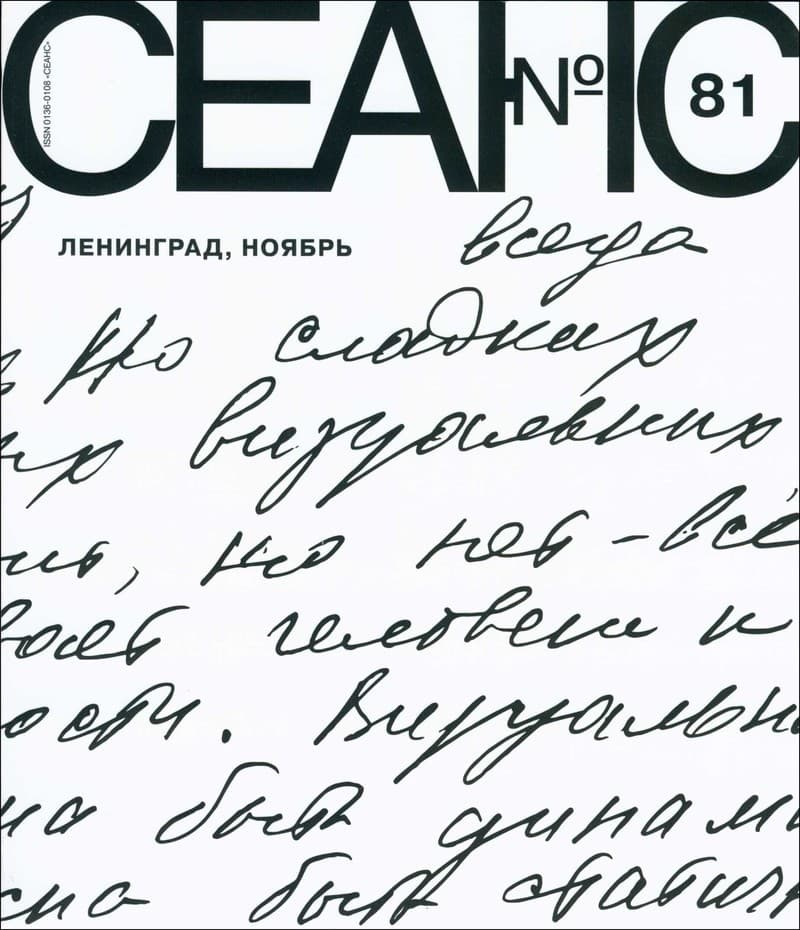 СЕАНС
№ 81
ISSN 0136-0108 «СЕАНС»
ЛЕНИНГРАД, НОЯБРЬ
всегда
но сладких
их визуальных
ит, но нет – всё
вает человек и
ости. Визуальн
на быть динами
жна быть статичн